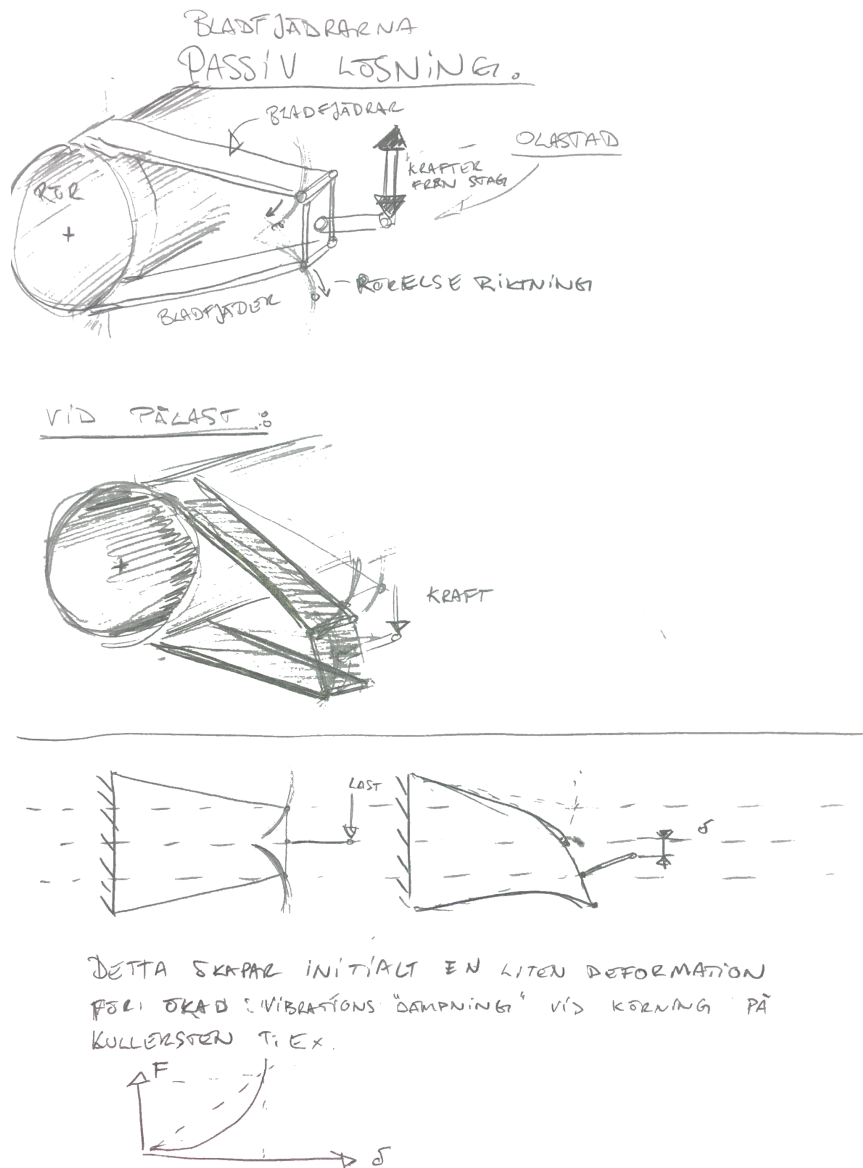 BLADFJÄDRARNA
PASSIV LÖSNING.
BLADFJÄDRAR
OLASTAD
KRAFTER
FRÅN STAG
RÖR
RÖRELSE RIKTNING
BLADFJÄDER
VID PÅLAST :
KRAFT
LAST
δ
DETTA SKAPAR INITIALT EN LITEN DEFORMATION
FÖR ÖKAD VIBRATIONS "DÄMPNING" VID KÖRNING PÅ
KULLERSTEN T. EX.
F
δ